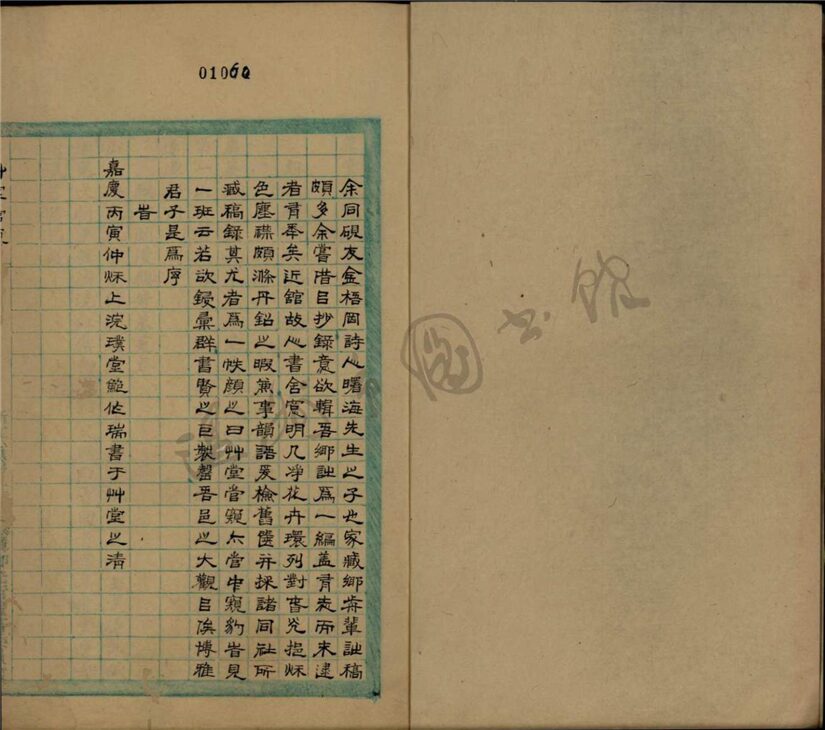 01060
余同硯友金梧岡詩人曙海先生之子也家藏鄉歬輩詩稿
頗多余嘗借㠯抄錄意欲輯吾鄉詩爲一編蓋有志而未逮
者有年矣近館故人書舍窻明几淨花卉環列對春光挹秌
色塵襟頗滌丹鉛之暇兼事韻語爰檢舊篋并採諸同社所
藏稿錄其尤者爲一帙顔之曰艸堂管窺亦管中窺豹旹見
一班云若欲鋟彙群書賢之巨製罄吾邑之大觀㠯俟博雅
君子是爲序
旹
嘉慶丙寅仲秌上浣璞堂範佐瑞書于艸堂之清
圖書館